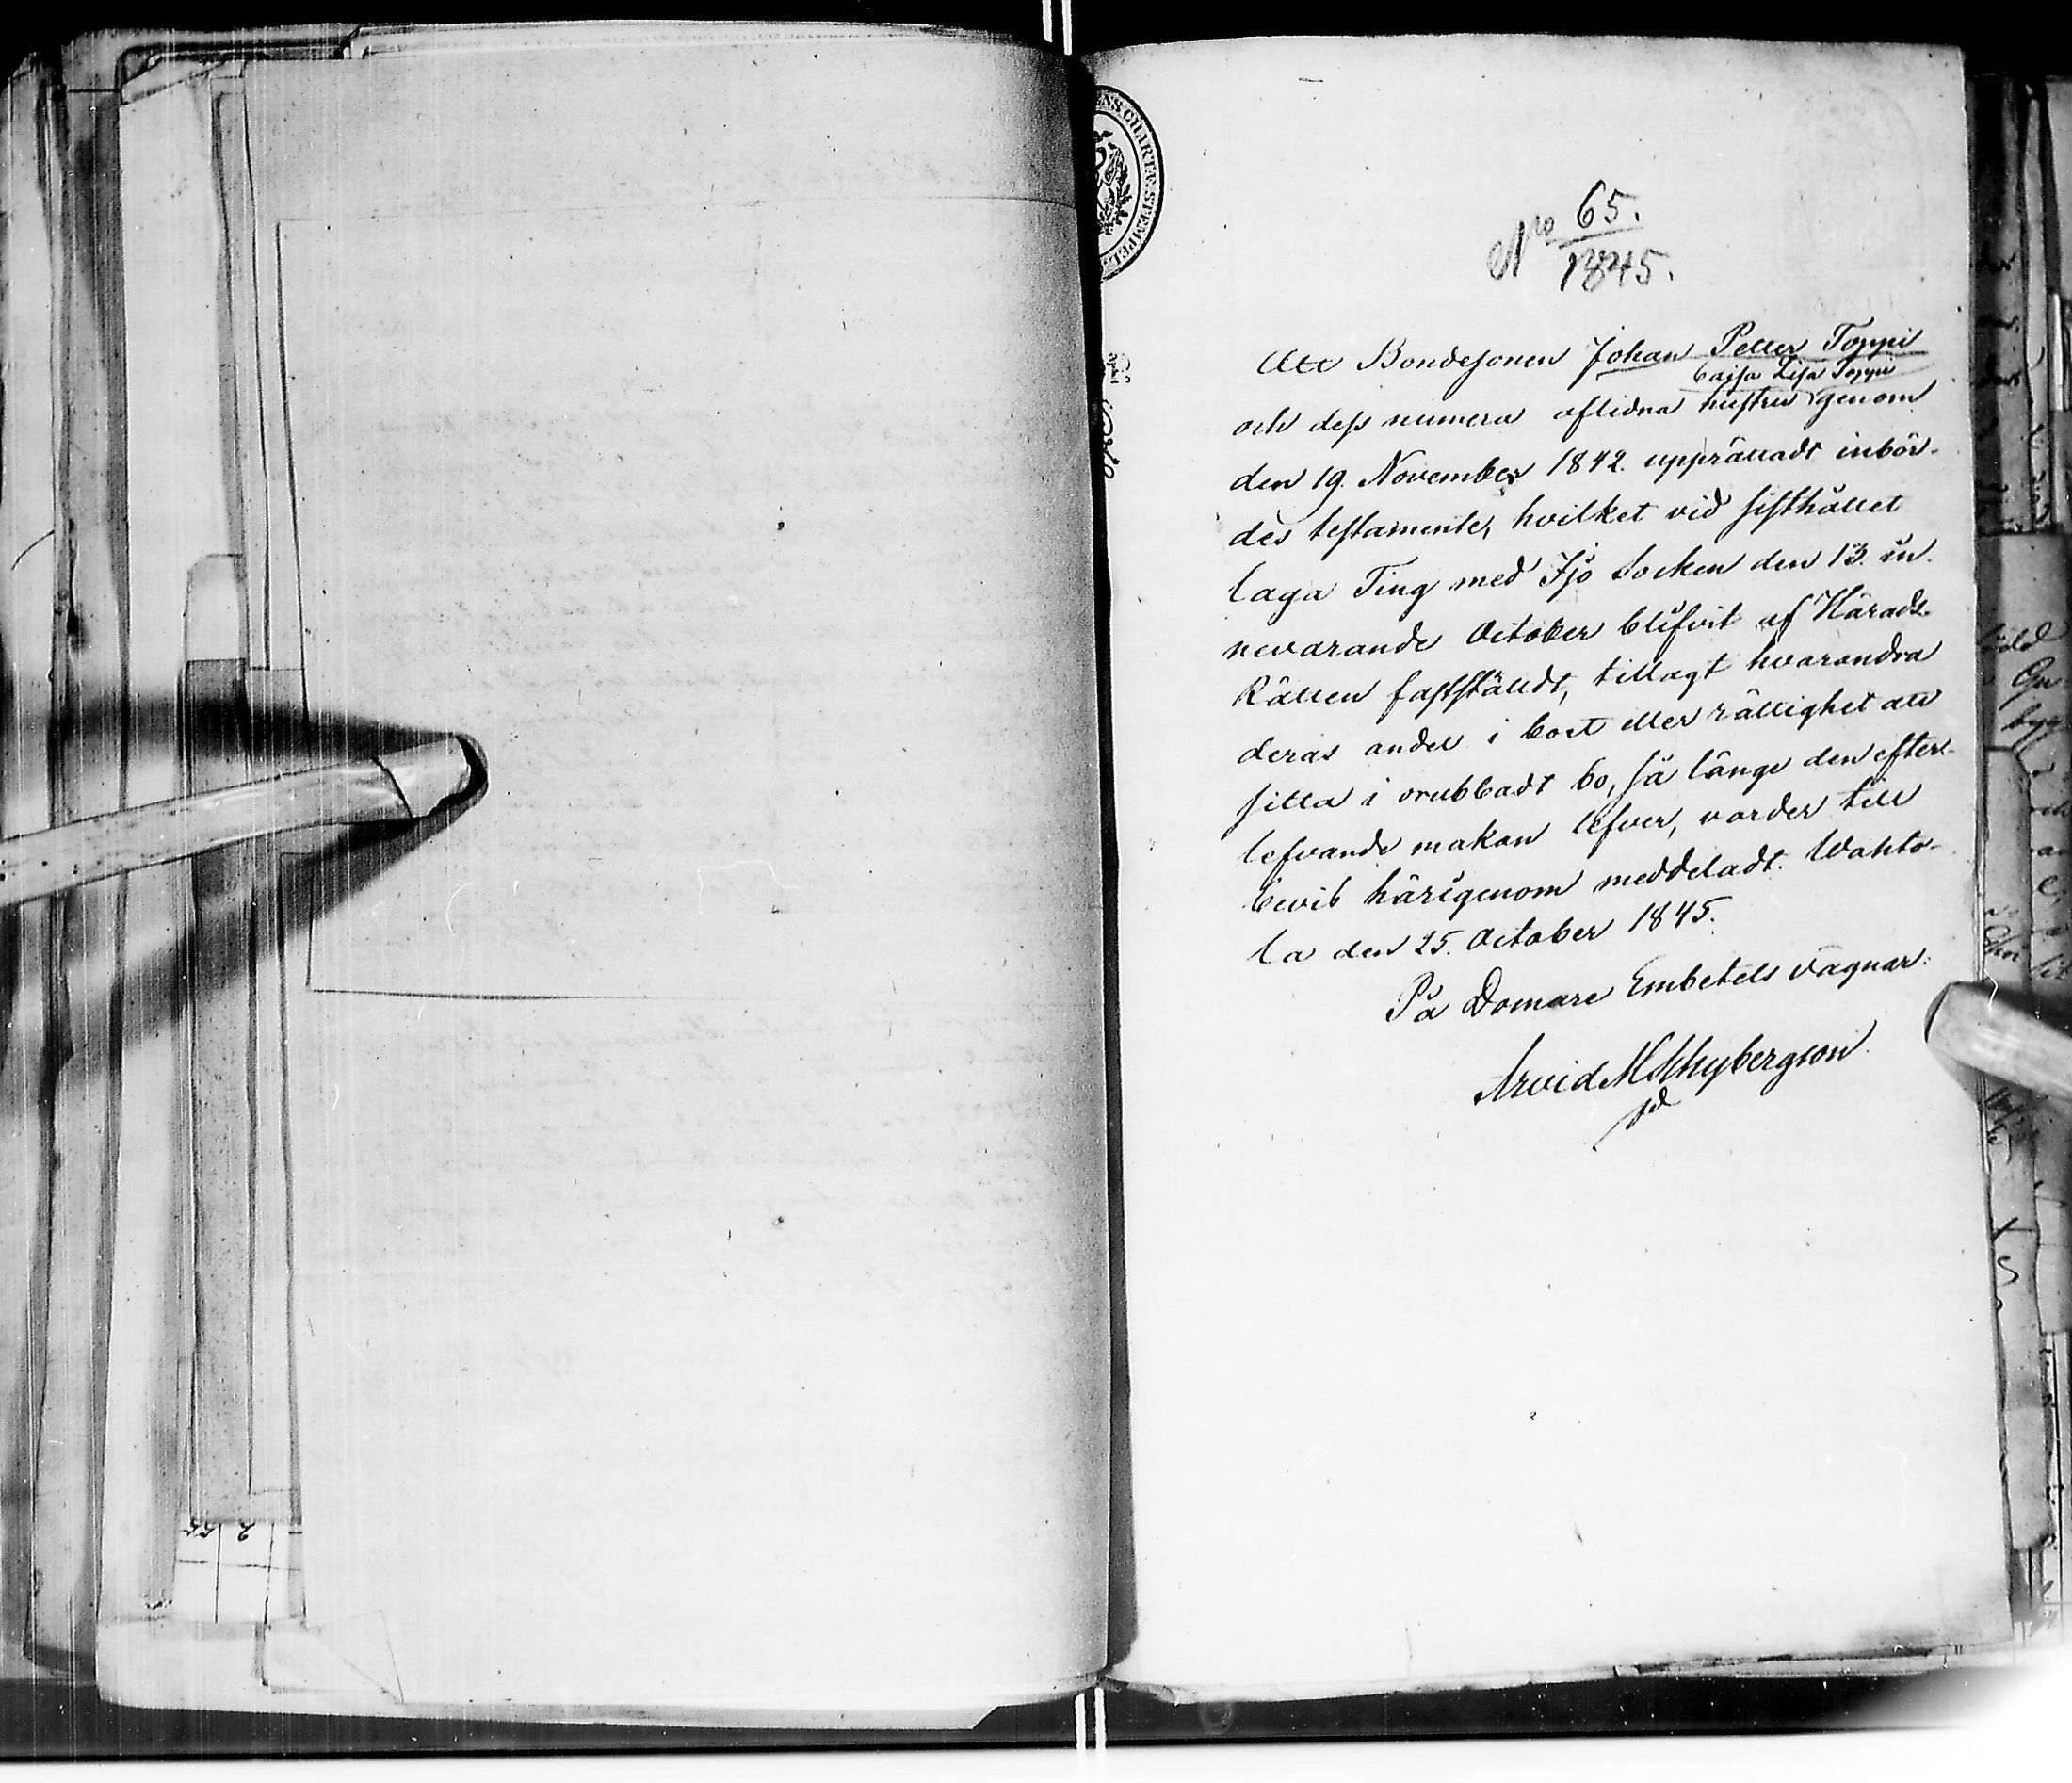 No 65.
1845.
Att Bondesonen Johan Petter Toppi
Cajsa Lisa Toppi
och dess numera aflidna hustru genom
den 19 November 1842. upprättadt inbör-
des testamente, hvilket vid sisthållet
laga Ting med Ijo Socken den 13. in-
nevarande October blifvit af Härads-
Rätten fastställdt, tillagt hvarandra
deras andel i boet eller rättighet att
sitta i orubbadt bo, så länge den efter-
lefvande makan lefver, varder till
bevis härigenom meddeladt. Wahto-
la den 25. October 1845.
På Domare Embetets vägnar:
Arvid M Schybergson
CHARTÆ. STEMPEL